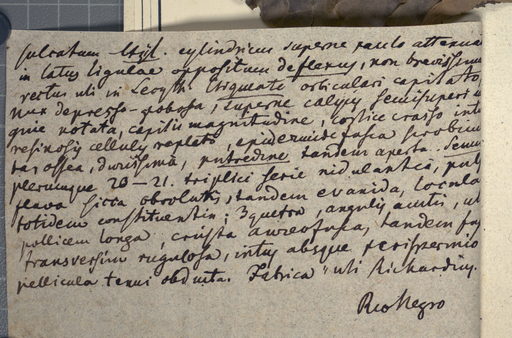 sulcatum Styl. cylindricus superne paulo attenua
in latus ligulae oppositum deflexus, non brevissimu
rectus uti in Lecyth. Stigmate orticulari capitato,
Nux depresso-globosa, superne calyci semisuperi
que notata, capitis magnitudine, cortice crasso inte
resinosis cellulis repleto, epidermide fusca scrobicu
tas ossea, durissima, putredine tandem aperta. Semin
plerumque 20–21. triplici serie nidulantia, pulp
flava sicca obvoluta, tandem evanida, locula
totidem constituentia; 3quetra, angulis acutis,
pollicem longa, crusta aureofusca, tandem fus
transversim rugulosa, intus absque perispermio
pellicula tenui obducta. Fabrica uti Richardius.
Rio Negro